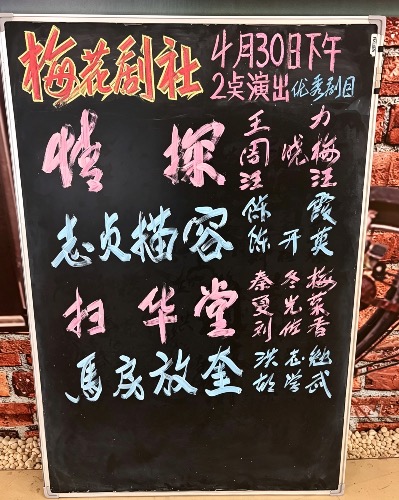 梅花剧社
4月30日下午
2点演出优秀剧目
情探 王力
周晓梅
汪汪
志贞描容 陈霞
陈开英
扫华堂 秦冬梅
夏光荣
刘佑香
馬房放奎 洪志勉
胡学武